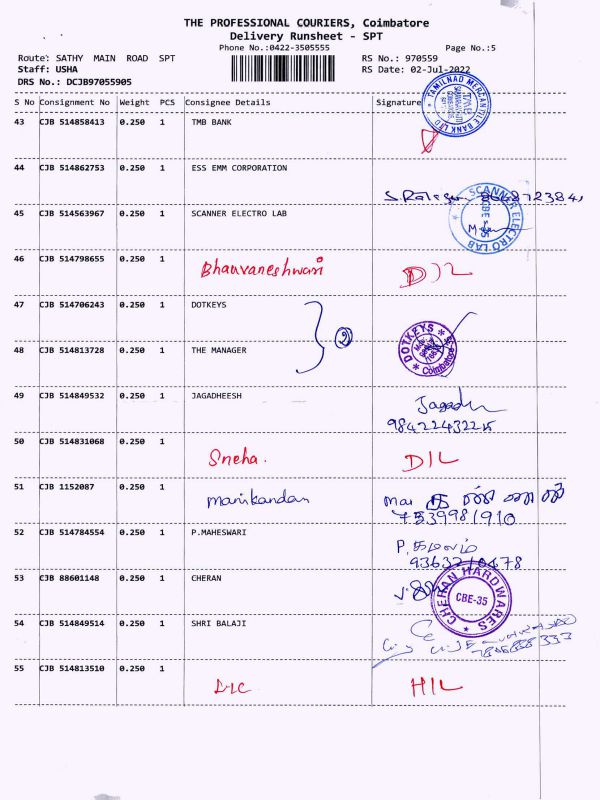 THE PROFESSIONAL COURIERS, Coimbatore
Delivery Runsheet - SPT
Phone No.:0422-3505555 Page No.:5
Route: SATHY MAIN ROAD SPT RS No.: 970559
Staff: USHA RS Date: 02-Jul-2022
DRS No.: DCJB97055905
S No Consignment No Weight PCS Consignee Details Signature
43 CJB 514858413 0.250 1 TMB BANK
TAMILNAD MERCANTILE BANK LTD
44 CJB 514862753 0.250 1 ESS EMM CORPORATION
45 CJB 514563967 0.250 1 SCANNER ELECTRO LAB
SCANNER ELECTRO LAB
46 CJB 514798655 0.250 1 Bhauvaneshwari D/L
47 CJB 514706243 0.250 1 DOTKEYS
2
DOTKEYS Coimbatore
48 CJB 514813728 0.250 1 THE MANAGER
49 CJB 514849532 0.250 1 JAGADHEESH
50 CJB 514831068 0.250 1 Sneha. D/L
51 CJB 1152087 0.250 1 Manikandan
7539981910
52 CJB 514784554 0.250 1 P.MAHESWARI P. கமலம்
53 CJB 88601148 0.250 1 CHERAN
CHERAN HARDWARES CBE-35
54 CJB 514849514 0.250 1 SHRI BALAJI
55 CJB 514813510 0.250 1 LIC H/L